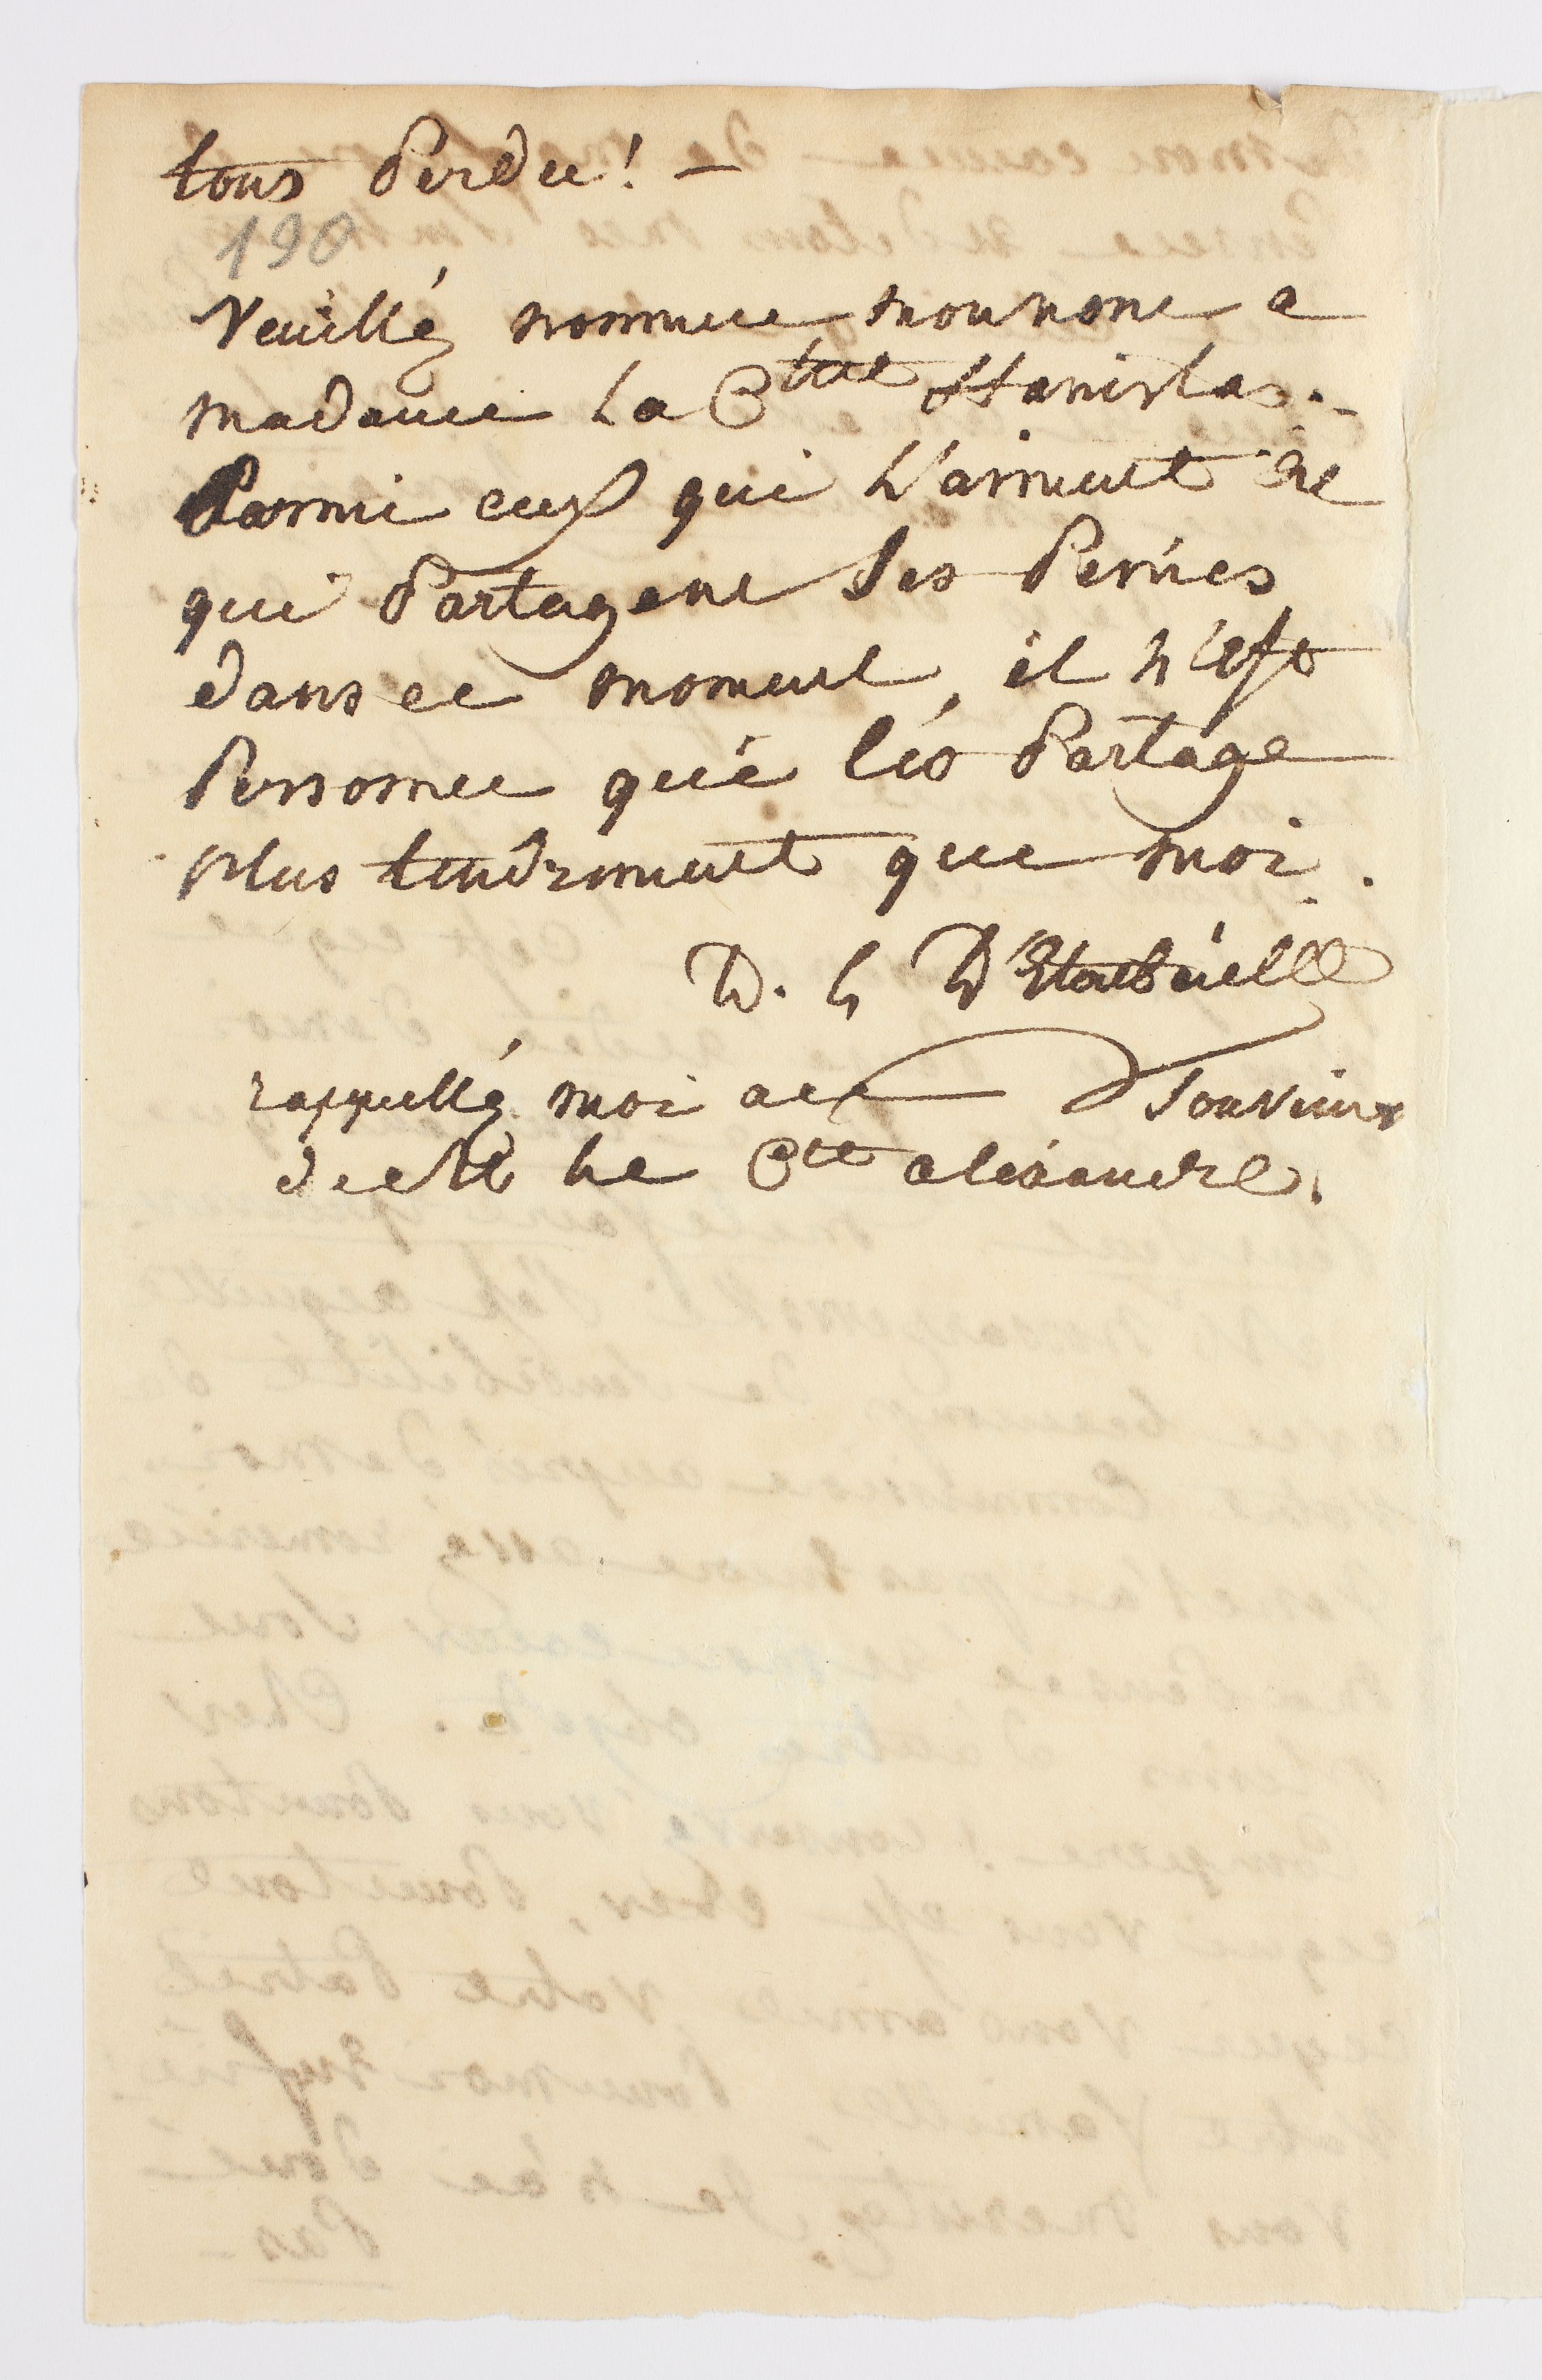 tous Perdu! —
190
Veuillé nommer mon nome a
madame La Ctesse Stanislas. -
Parmi ceux qui L'aiment et
qui Partagent Ses Peines
dans ce moment, il n'est
Personne qui les Partage
plus tendrement que moi.
D. L
rappellé moi au Souvenir
de M le Cte alexandre.